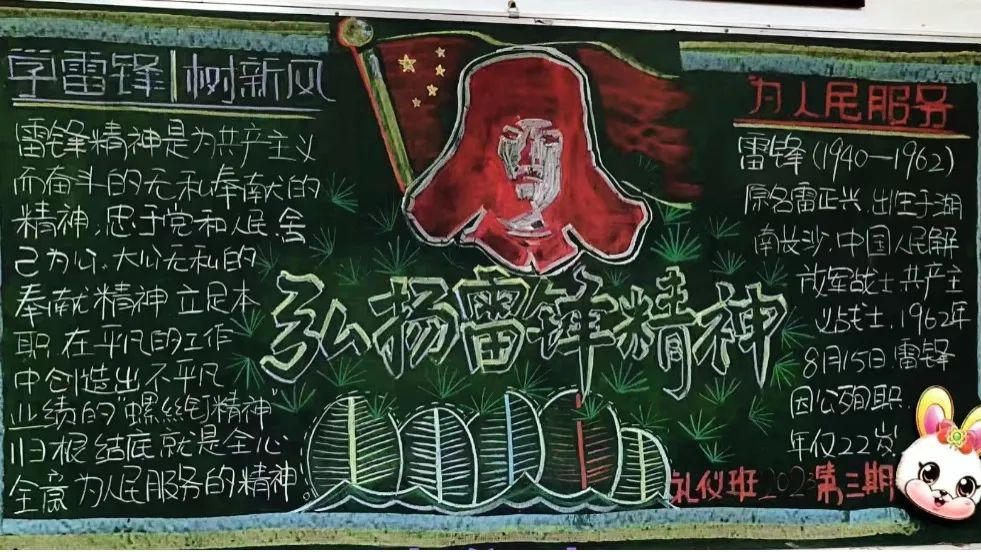 学雷锋 树新风
雷锋精神是为共产主义
而奋斗的无私奉献的
精神,忠于党和人民、舍
己为公、大公无私的
奉献精神 立足本
职、在平凡的工作
中创造出不平凡
业绩的“螺丝钉精神”
归根结底就是全心
全意为人民服务的精神。
弘扬雷锋精神
为人民服务
雷锋(1940—1962)
原名雷正兴,出生于湖
南长沙,中国人民解
放军战士 共产主
义战士,1962年
8月15日,雷锋
因公殉职,
年仅22岁!
礼仪班 2023第三期